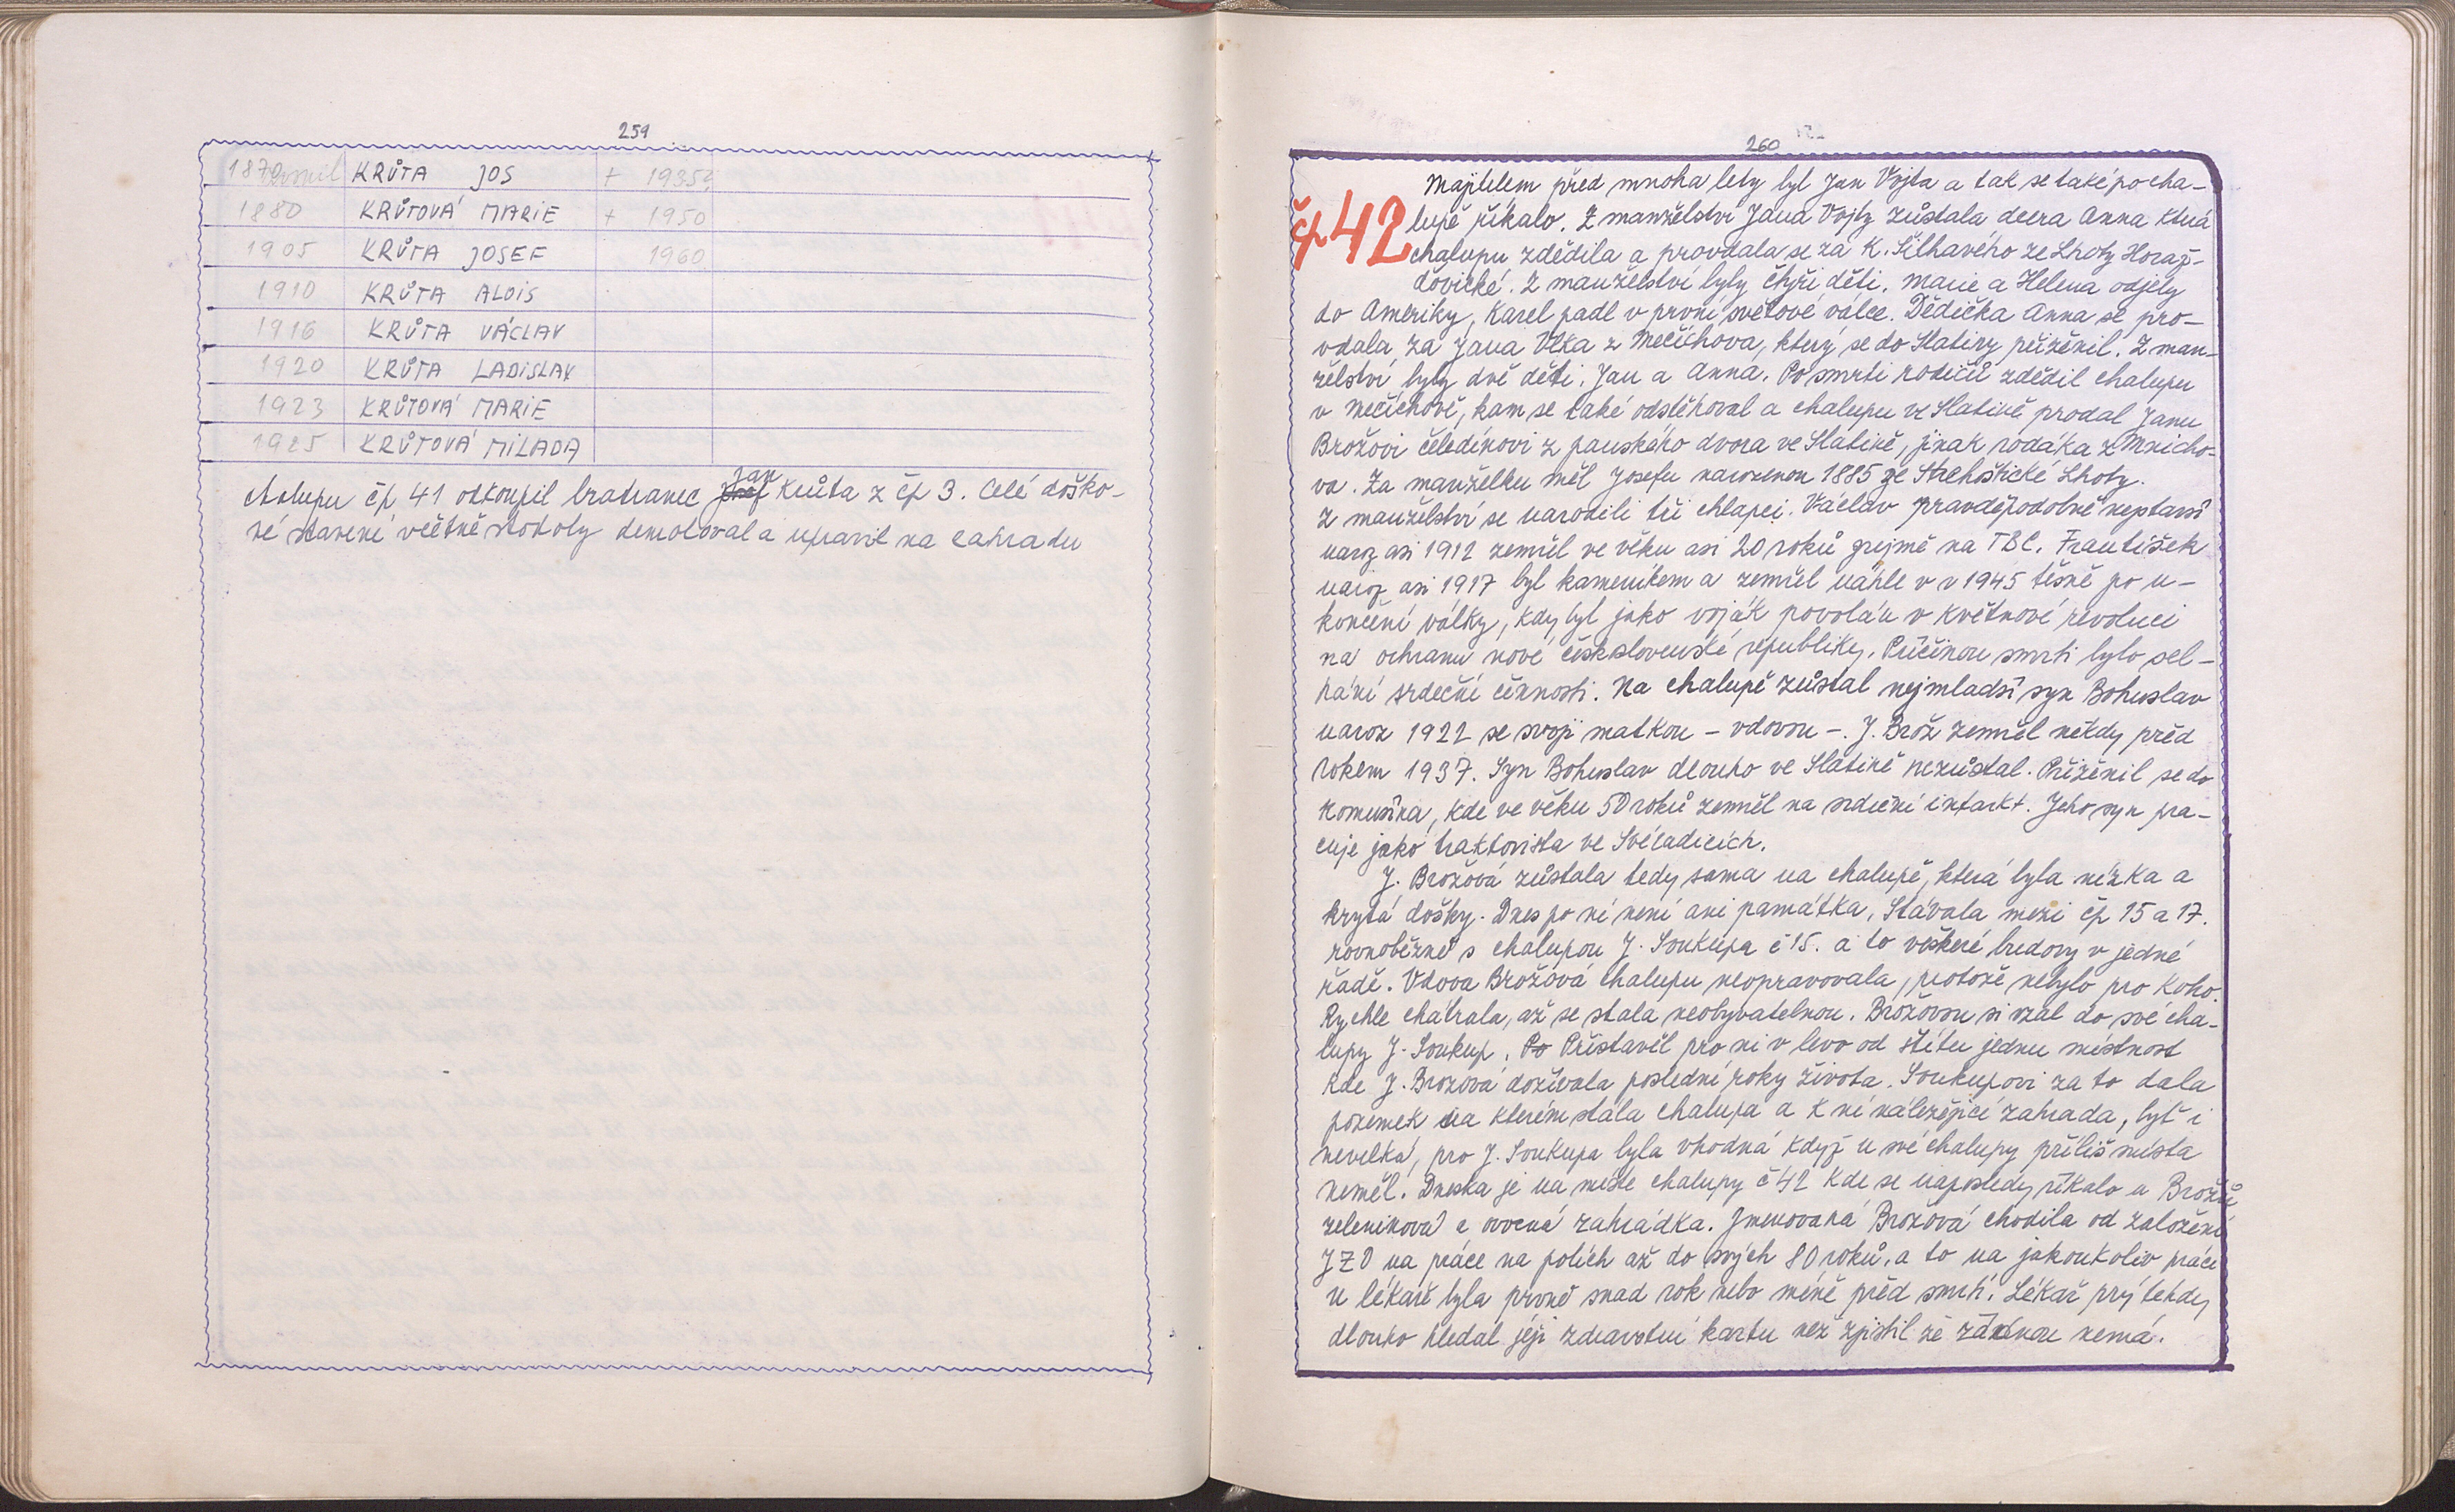 259
1870 KRŮTA JOS + 1935?
1880 KRŮTOVÁ MARIE + 1950
1905 KRŮTA JOSEF 1960
1910 KRŮTA ALOIS
1916 KRŮTA VÁCLAV
1920 KRŮTA LADISLAV
1923 KRŮTOVÁ MARIE
1925 KRŮTOVÁ MILADA
Chalupu čp 41 odkoupil bratranec Jan Krůta z čp 3. Celé doško-
vé stavení včetně stodoly demoloval a upravil na zahradu
260
čp 42
Majitelem před mnoha lety byl Jan Vojta a tak se také po cha-
lupě říkalo. Z manželství Jana Vojty zůstala dcera Anna která
chalupu zdědila a provdala se za K. Šilhavého ze Lhoty Horaž-
ďovické. Z manželství byly čtyři děti. Marie a Helena odjely
do Ameriky, Karel padl v první světové válce. Dědička Anna se pro-
vdala za Jana Vlka z Mečíchova, který se do Slatiny přiženil. Z man-
želství byly dvě děti. Jan a Anna. Po smrti rodičů zdědil chalupu
v Mečíchově, kam se také odstěhoval a chalupu ve Slatině prodal Janu
Brožovi čeledínovi z panského dvora ve Slatině, jinak rodáka z Mnicho-
va. Za manželku měl Josefu narozenou 1885 ze Střehoštické Lhoty.
Z manželství se narodili tři chlapci. Václav pravděpodobně nejstarší
naroz asi 1912 zemřel ve věku asi 20 roků zřejmě na TBC. František
naroz asi 1917 byl kameníkem a zemřel náhle v r 1945 těsně po u-
končení války, kdy byl jako voják povolán v květnové revoluci
na ochranu nové československé republiky. Příčinou smrti bylo sel-
hání srdeční činnosti. Na chalupě zůstal nejmladší syn Bohuslav
naroz 1922 se svojí matkou – vdovou –. J. Brož zemřel někdy před
rokem 1937. Syn Bohuslav dlouho ve Slatině nezůstal. Přiženil se do
Komušína, kde ve věku 50 roků zemřel na srdeční infarkt. Jeho syn pra-
cuje jako traktorista ve Svéradicích.
J. Brožová zůstala tedy sama na chalupě, která byla nízká a
krytá došky. Dnes po ní není ani památka. Stávala mezi čp 15 a 17.
rovnoběžně s chalupou J. Soukupa č 15. a to veškeré budovy v jedné
řadě. Vdova Brožová chalupu neopravovala, protože nebylo pro koho.
Rychle chátrala, až se stala neobyvatelnou. Brožovou si vzal do své cha-
lupy J. Soukup. Po Přistavěl pro ni v levo od štítu jednu místnost
kde J. Brožová dožívala poslední roky života. Soukupovi za to dala
pozemek na kterém stála chalupa a k ní náležející zahrada, byť i
nevelká, pro J. Soukupa byla vhodná když u své chalupy příliš místa
neměl. Dneska je na místě chalupy č 42 kde se naposledy říkalo u Brožů
zeleninová a ovocná zahrádka. Jmenovaná Brožová chodila od založení
JZD na práce na polích až do svých 80 roků, a to na jakoukoliv práci
u lékaře byla prvně snad rok nebo méně před smrtí. Lékař prý tehdy
dlouho hledal její zdravotní kartu než zjistil že žádnou nemá.